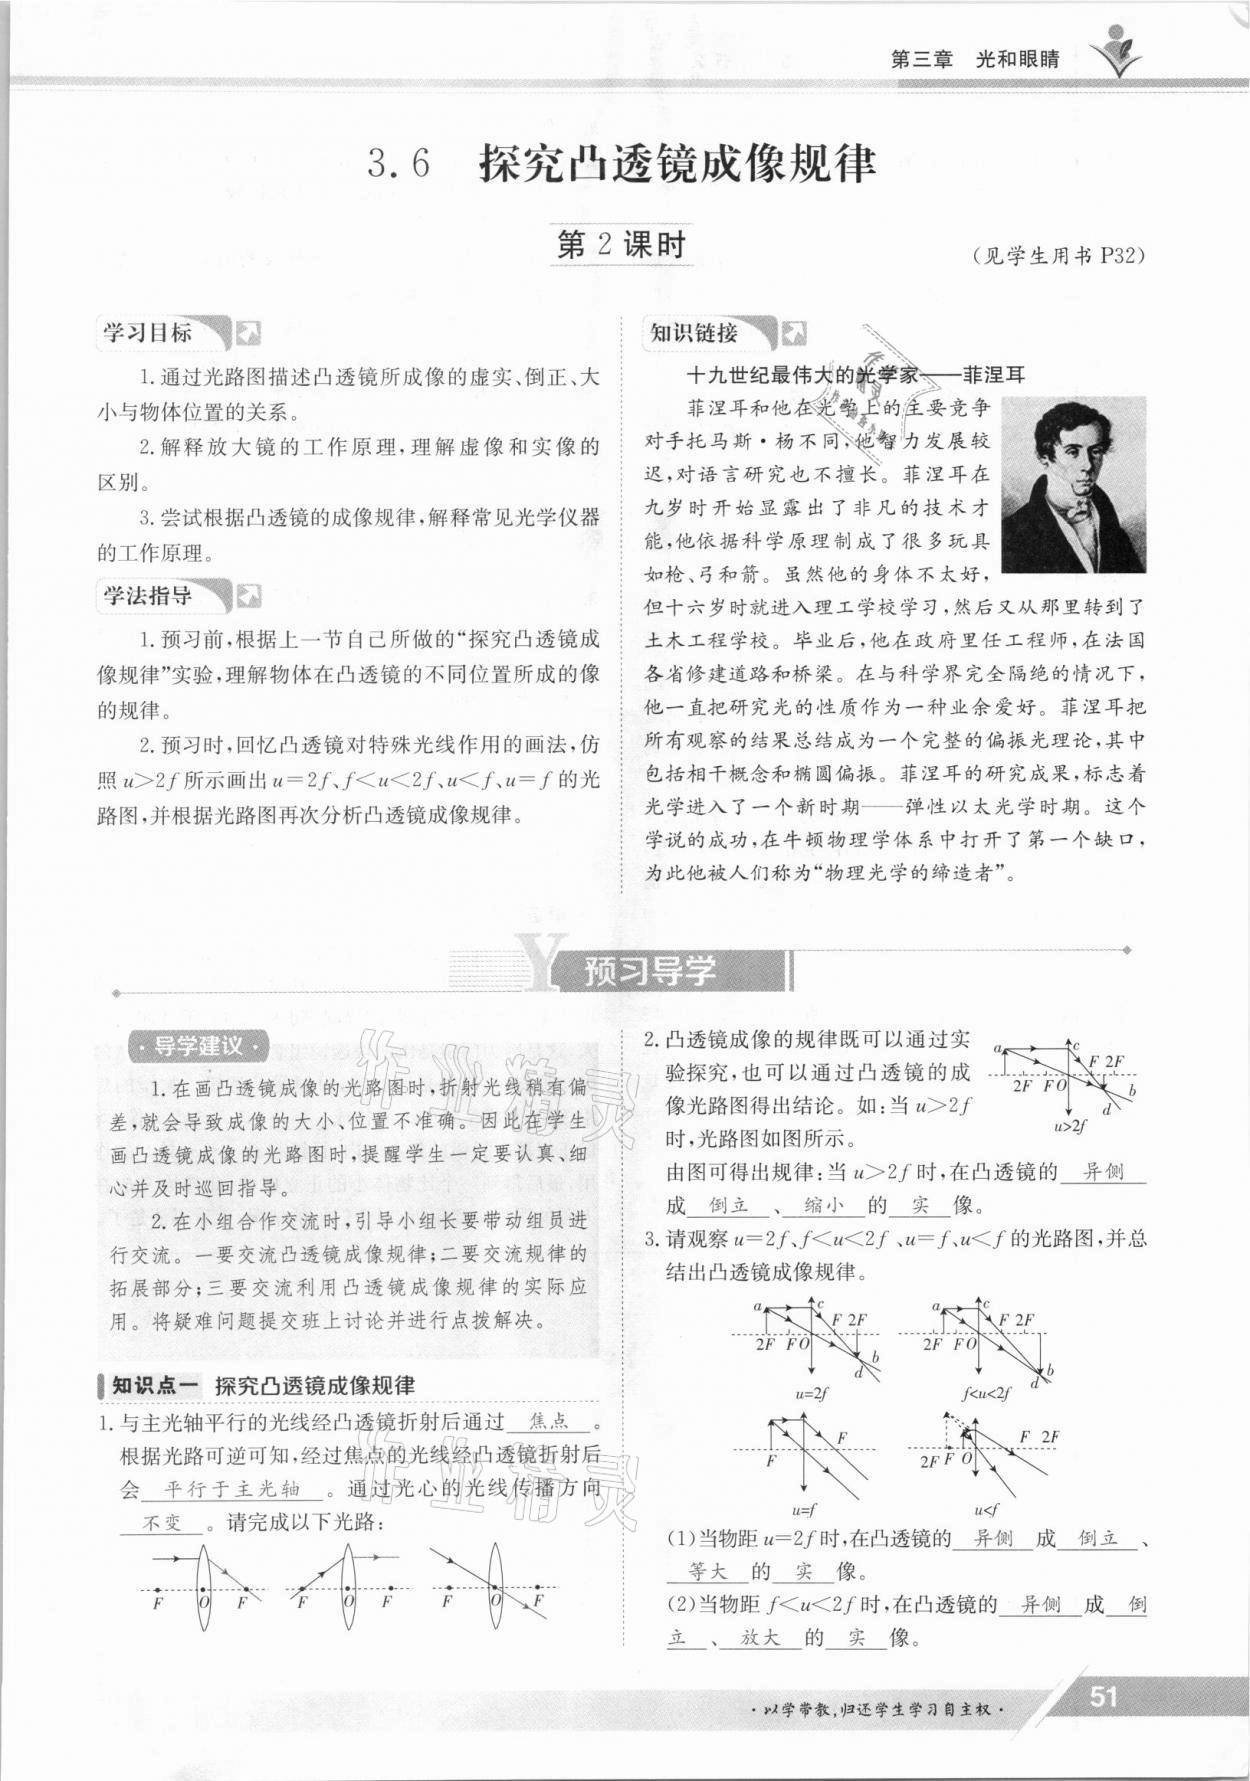 第三章 光和眼睛
3.6 探究凸透镜成像规律
第2课时
(见学生用书 P32)
学习目标
1.通过光路图描述凸透镜所成像的虚实、倒正、大
小与物体位置的关系。
2.解释放大镜的工作原理,理解虚像和实像的
区别。
3.尝试根据凸透镜的成像规律,解释常见光学仪器
的工作原理。
学法指导
1.预习前,根据上一节自己所做的“探究凸透镜成
像规律”实验,理解物体在凸透镜的不同位置所成的像
的规律。
2.预习时,回忆凸透镜对特殊光线作用的画法,仿
照u>2f所示画出u=2f、f<u<2f、u<f、u=f的光
路图,并根据光路图再次分析凸透镜成像规律。
知识链接
十九世纪最伟大的光学家——菲涅耳
菲涅耳和他在光学上的主要竞争
对手托马斯·杨不同,他智力发展较
迟,对语言研究也不擅长。菲涅耳在
九岁时开始显露出了非凡的技术才
能,他依据科学原理制成了很多玩具
如枪、弓和箭。虽然他的身体不太好,
但十六岁时就进入理工学校学习,然后又从那里转到了
土木工程学校。毕业后,他在政府里任工程师,在法国
各省修建道路和桥梁。在与科学界完全隔绝的情况下,
他一直把研究光的性质作为一种业余爱好。菲涅耳把
所有观察的结果总结成为一个完整的偏振光理论,其中
包括相干概念和椭圆偏振。菲涅耳的研究成果,标志着
光学进入了一个新时期——弹性以太光学时期。这个
学说的成功,在牛顿物理学体系中打开了第一个缺口,
为此他被人们称为“物理光学的缔造者”。
Y 预习导学
·导学建议·
1.在画凸透镜成像的光路图时,折射光线稍有偏
差,就会导致成像的大小、位置不准确。因此在学生
画凸透镜成像的光路图时,提醒学生一定要认真、细
心并及时巡回指导。
2.在小组合作交流时,引导小组长要带动组员进
行交流。一要交流凸透镜成像规律;二要交流规律的
拓展部分;三要交流利用凸透镜成像规律的实际应
用。将疑难问题提交班上讨论并进行点拨解决。
知识点一 探究凸透镜成像规律
1.与主光轴平行的光线经凸透镜折射后通过 焦点 。
根据光路可逆可知,经过焦点的光线经凸透镜折射后
会 平行于主光轴 。通过光心的光线传播方向
不变 。请完成以下光路:
F O F F O F F O F
2.凸透镜成像的规律既可以通过实
验探究,也可以通过凸透镜的成
像光路图得出结论。如:当u>2f
时,光路图如图所示。
a c F 2F
2F F O d b
u>2f
由图可得出规律:当u>2f时,在凸透镜的 异侧
成 倒立 、 缩小 的 实 像。
3.请观察u=2f、f<u<2f、u=f、u<f的光路图,并总
结出凸透镜成像规律。
a c F 2F a c F 2F
2F F O d b 2F F O d b
u=2f f<u<2f
F F F 2F
2F F O
u=f u<f
(1)当物距u=2f时,在凸透镜的 异侧 成 倒立 、
等大 的 实 像。
(2)当物距f<u<2f时,在凸透镜的 异侧 成 倒
立 、 放大 的 实 像。
·以学带教,归还学生学习自主权·
51
作业精灵
作业精灵